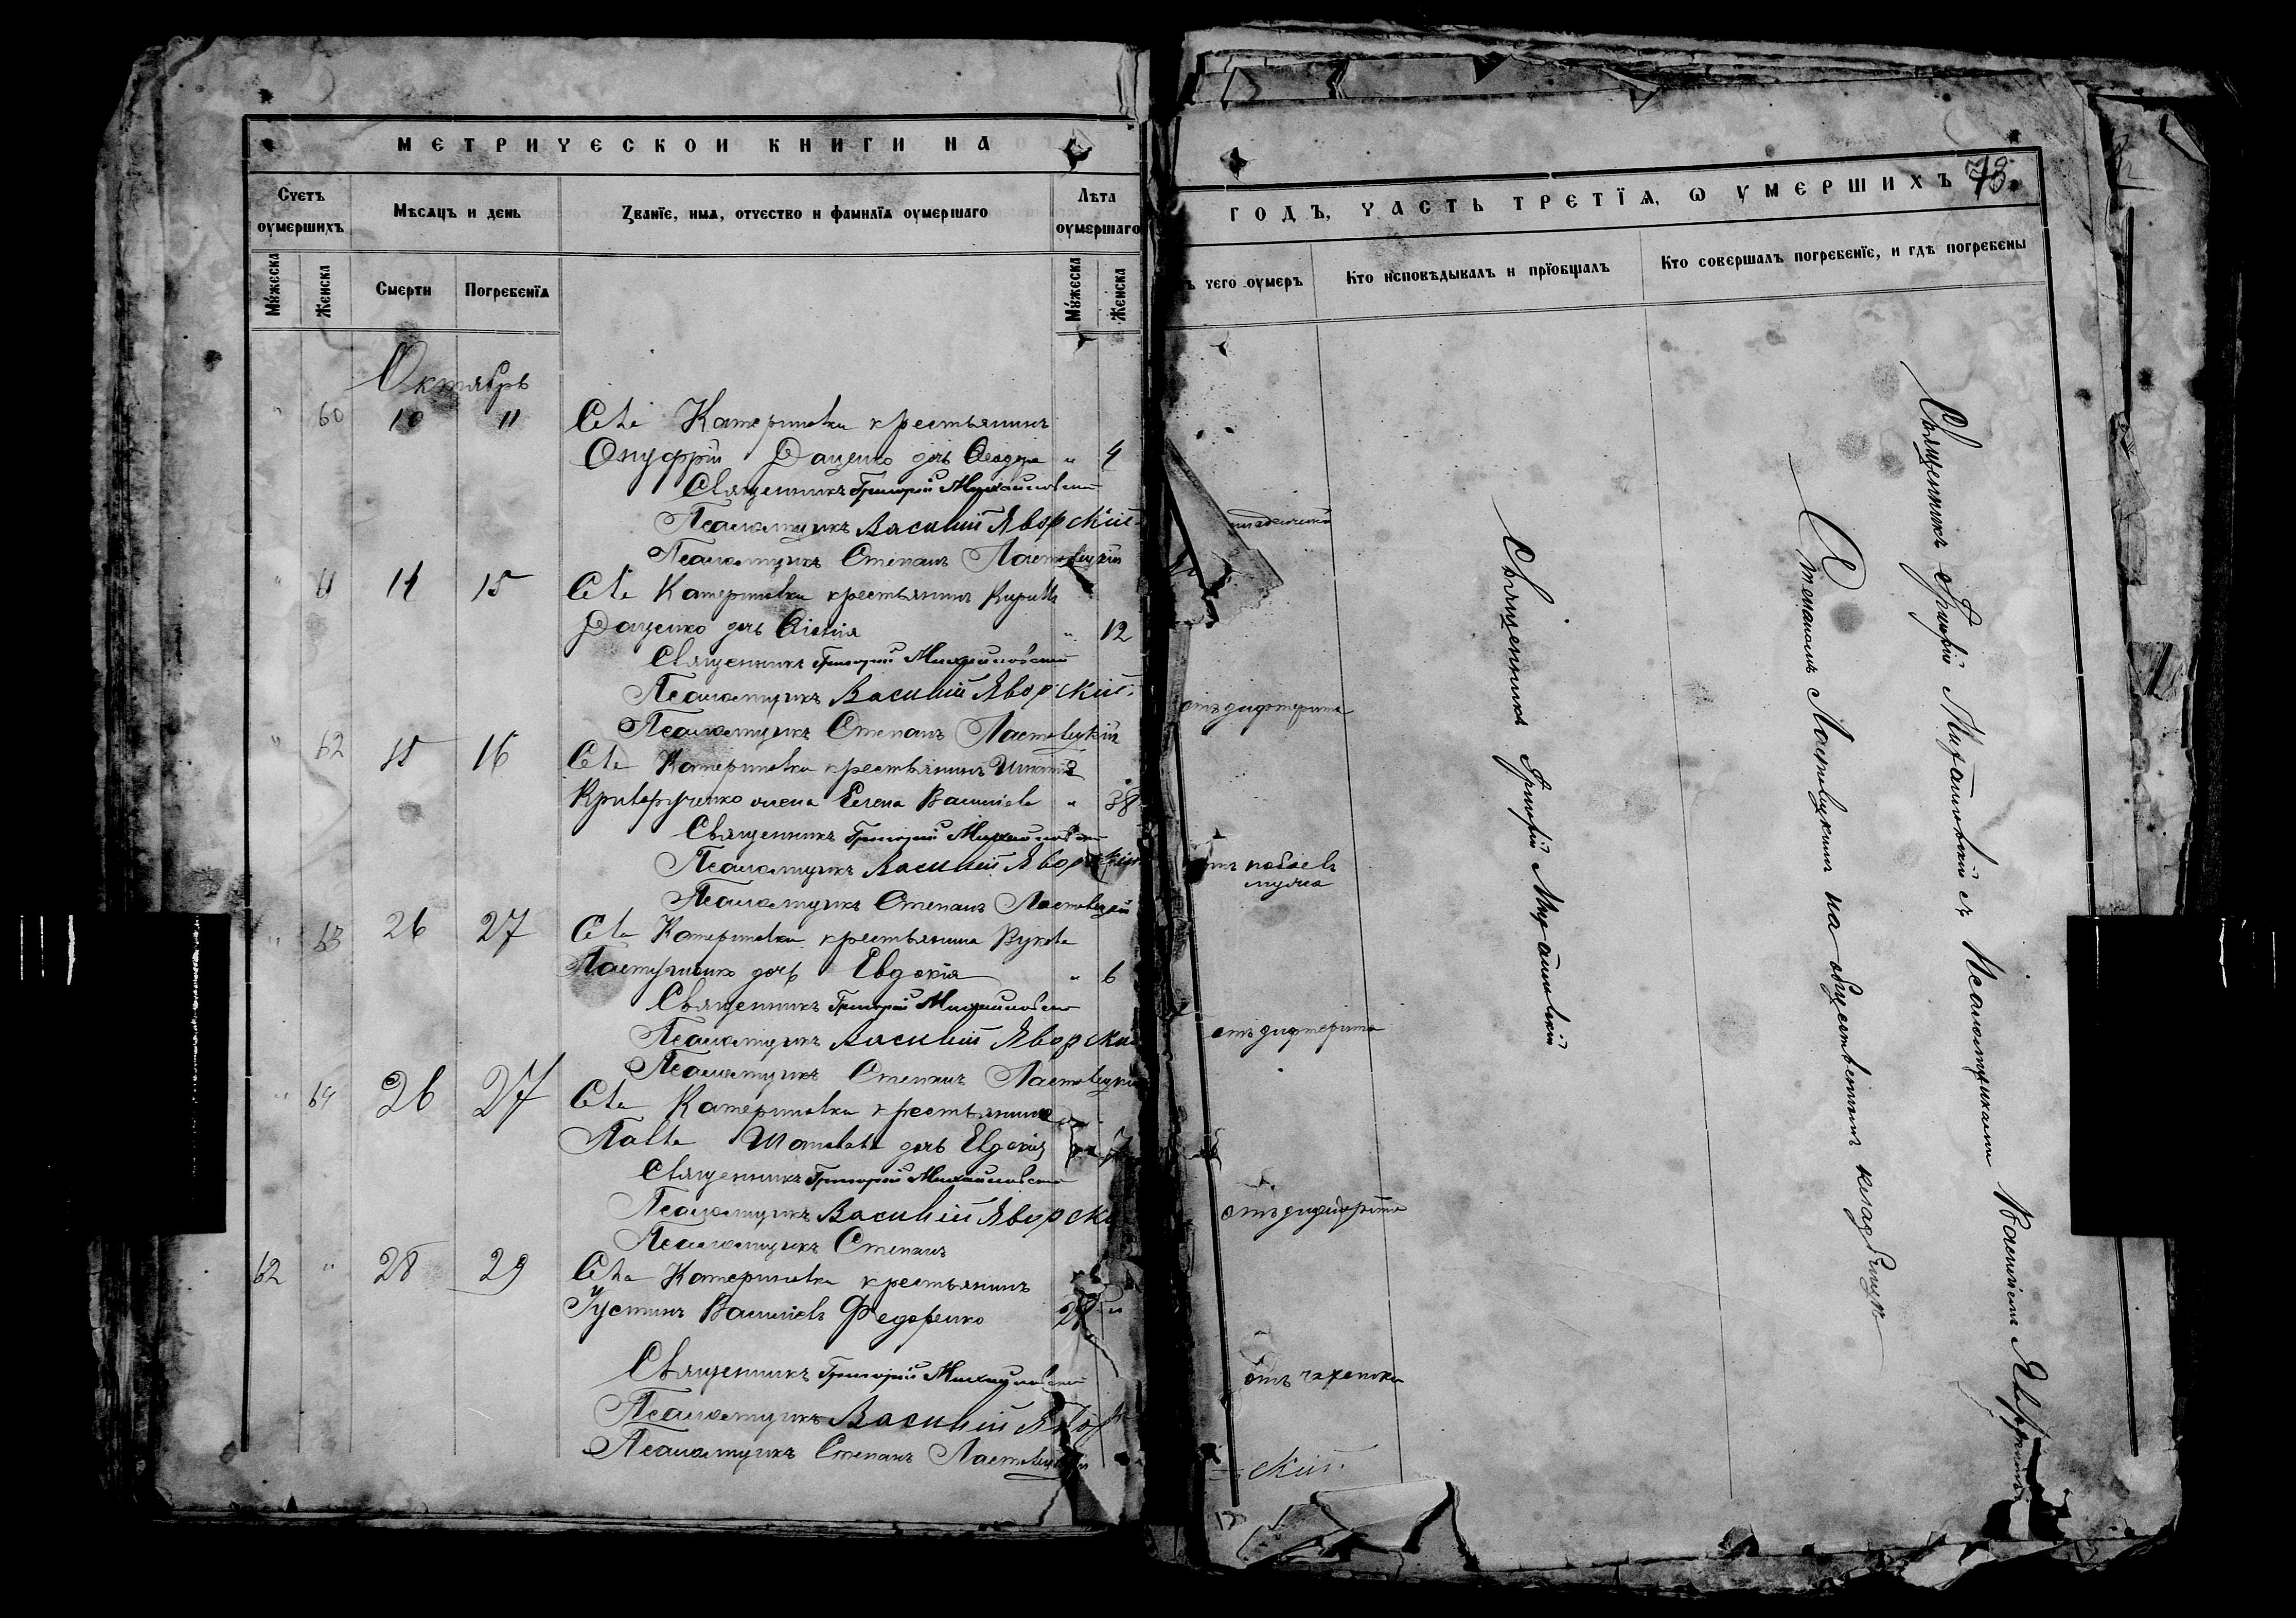 МЕТРИЧЕСКОИ КНИГИ НА
Счетъ оумершихъ
Мѣсѧцъ и день
Званїе, имѧ, отчество и фамилїѧ оумершаго
Лѣта оумершаго
Мꙋжеска
Женска
Смерти
Погребенїѧ
Мꙋжеска
Женска
Октябрь
" 60 10 11 Села Катериновки крестьянинъ
Онуфрій Даценко дочь " 4
Священникъ Григорій Михайловскій
Псаломщикъ Василій Яворскій
Псаломщикъ Степанъ Ластовецкій
" 61 14 15 Села Катериновки крестьянина Кирилла
Даценко дочь " 12
Священникъ Григорій Михайловскій
Псаломщикъ Василій Яворскій.
Псаломщикъ Степанъ Ластовецкій
" 62 15 16 Села Катериновки крестьянина
Криворученко жена Елена Васильева " 38
Священникъ Григорій Михайловскій
Псаломщикъ Василій Яворскій
Псаломщикъ Степанъ Ластовецкій
" 63 26 27 Села Катериновки крестьянина
дочь Евдокія " 6
Священникъ Григорій Михайловскій
Псаломщикъ Василій Яворскій
Псаломщикъ Степанъ Ластовецкій
" 64 26 27 Села Катериновки крестьянина
Павла дочь Евдокія
Священникъ Григорій Михайловскій
Псаломщикъ Василій Яворскій
Псаломщикъ Степанъ
62 " 28 29 Села Катериновки крестьянинъ
Іустинъ Васильевъ Федоренко "
Священникъ Григорій Михайловскій
Псаломщикъ Василій Яворскій
Псаломщикъ Степанъ Ластовецкій
73.
ГОДЪ, ЧАСТЬ ТРЕТЇѦ, Ѡ УМЕРШИХЪ
чего оумеръ
Кто исповѣдывалъ и прїобщалъ
Кто совершалъ погребенїе, и гдѣ погребены
отъ дифтерита
отъ дифтерита
отъ дифтерита
отъ чахотки
скій.
Священникъ Григорій Михайловскій
Священникъ Григорій Михайловскій съ Псаломщиками Василіемъ Яворскимъ
Степаномъ Ластовецкимъ на общественномъ кладбищѣ